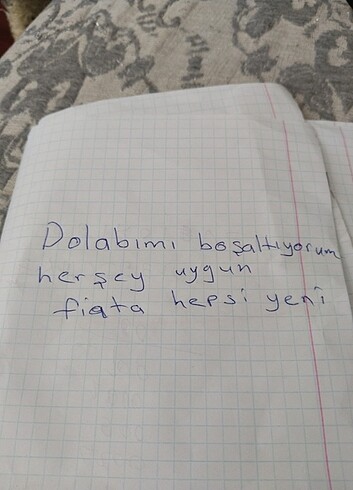 Dolabımı boşaltıyorum
herşey uygun
fiata hepsi yeni